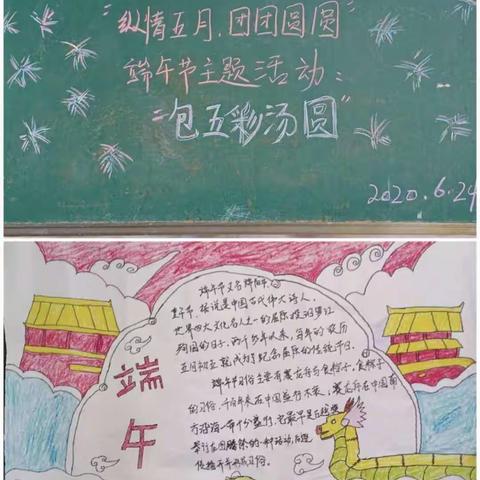 "纵情五月,团团圆圆"
端午节主题活动:
"包五彩汤圆"
2020.6.24
端午
端午节又名端阳节、
重午节,据说是中国古代伟大诗人、
世界四大文化名人之一的屈原投汨罗江
殉国的日子。两千多年来,每年的农历
五月初五就成为了纪念屈原的传统节日。
端午节习俗主要有赛龙舟与食粽子,食粽子
的习俗,千百年来在中国盛行不衰,赛龙舟在中国南
方沿海一带十分盛行,它最早是
举行在图腾祭的一种活动,